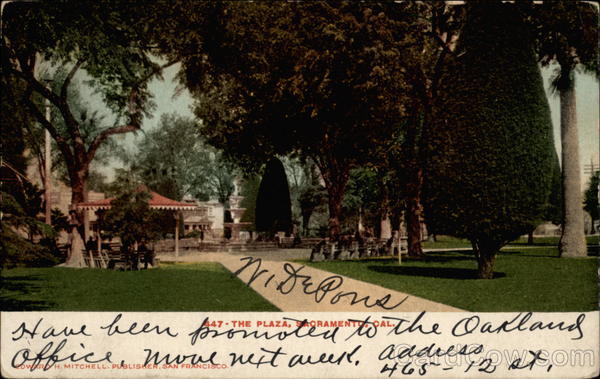 W. D. Pons
647 - THE PLAZA, SACRAMENTO, CAL.
Have been promoted to the Oakland
Office, Move next week. address
465 - 12 St.
EDWARD H. MITCHELL, PUBLISHER, SAN FRANCISCO.
CardCow.com